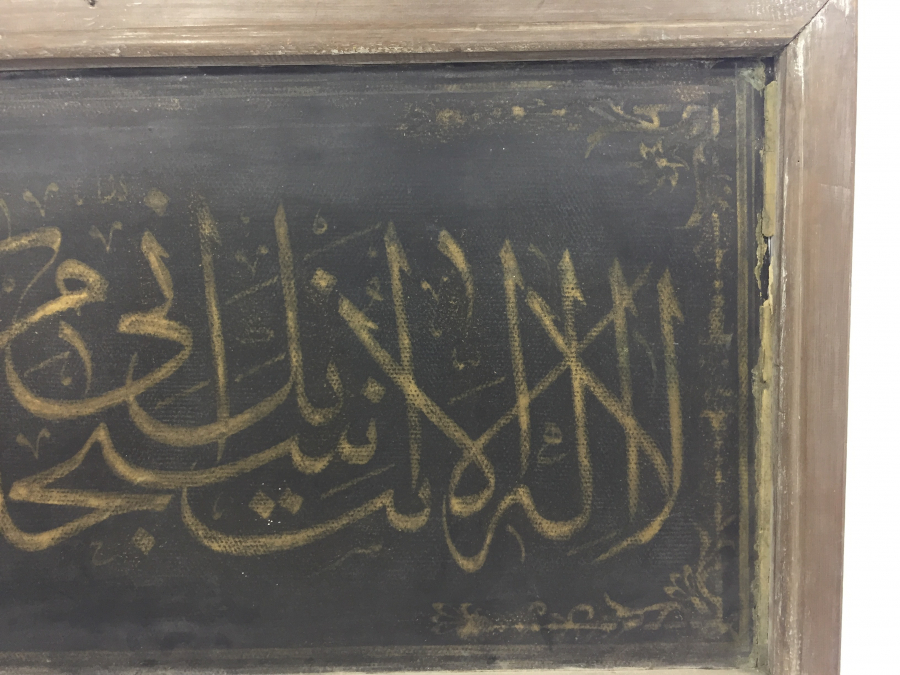 لا اله الا انت سبحانك انى